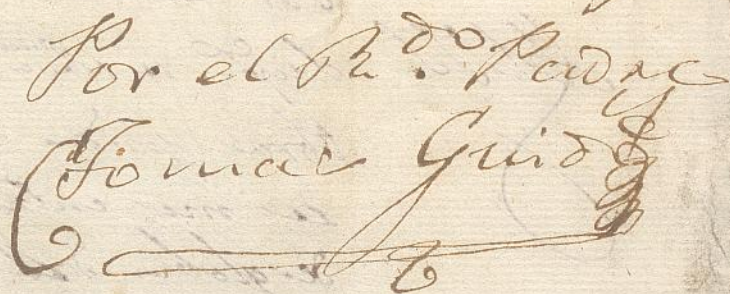 Por el R.do Padre
Tomas Guido